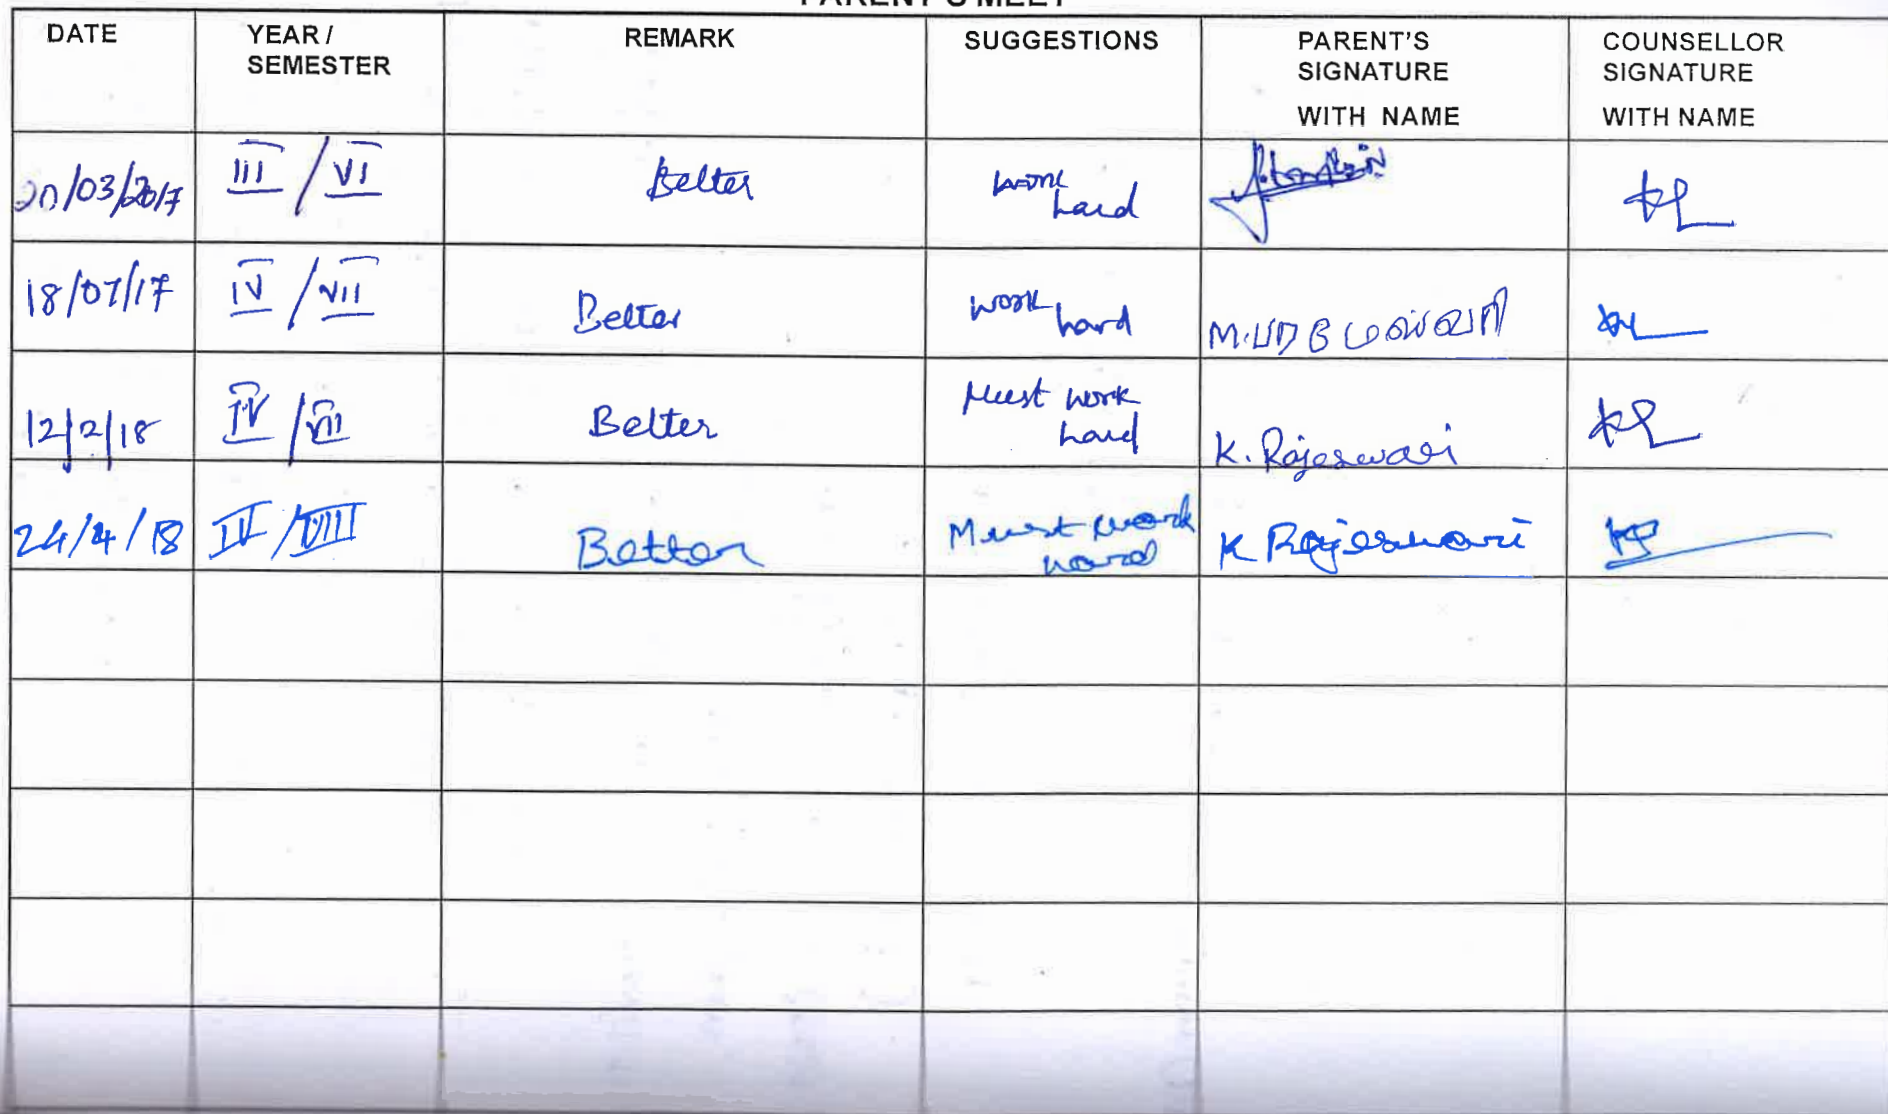 PARENT'S MEET
DATE YEAR / SEMESTER REMARK SUGGESTIONS PARENT'S SIGNATURE WITH NAME COUNSELLOR SIGNATURE WITH NAME
20/03/2017 III / VI Better work hard
18/07/17 IV / VII Better work hard
12/2/18 IV / VII Better Must work hard K. Rajeswari
24/4/18 IV / VIII Better Must work hard K Rajeswari